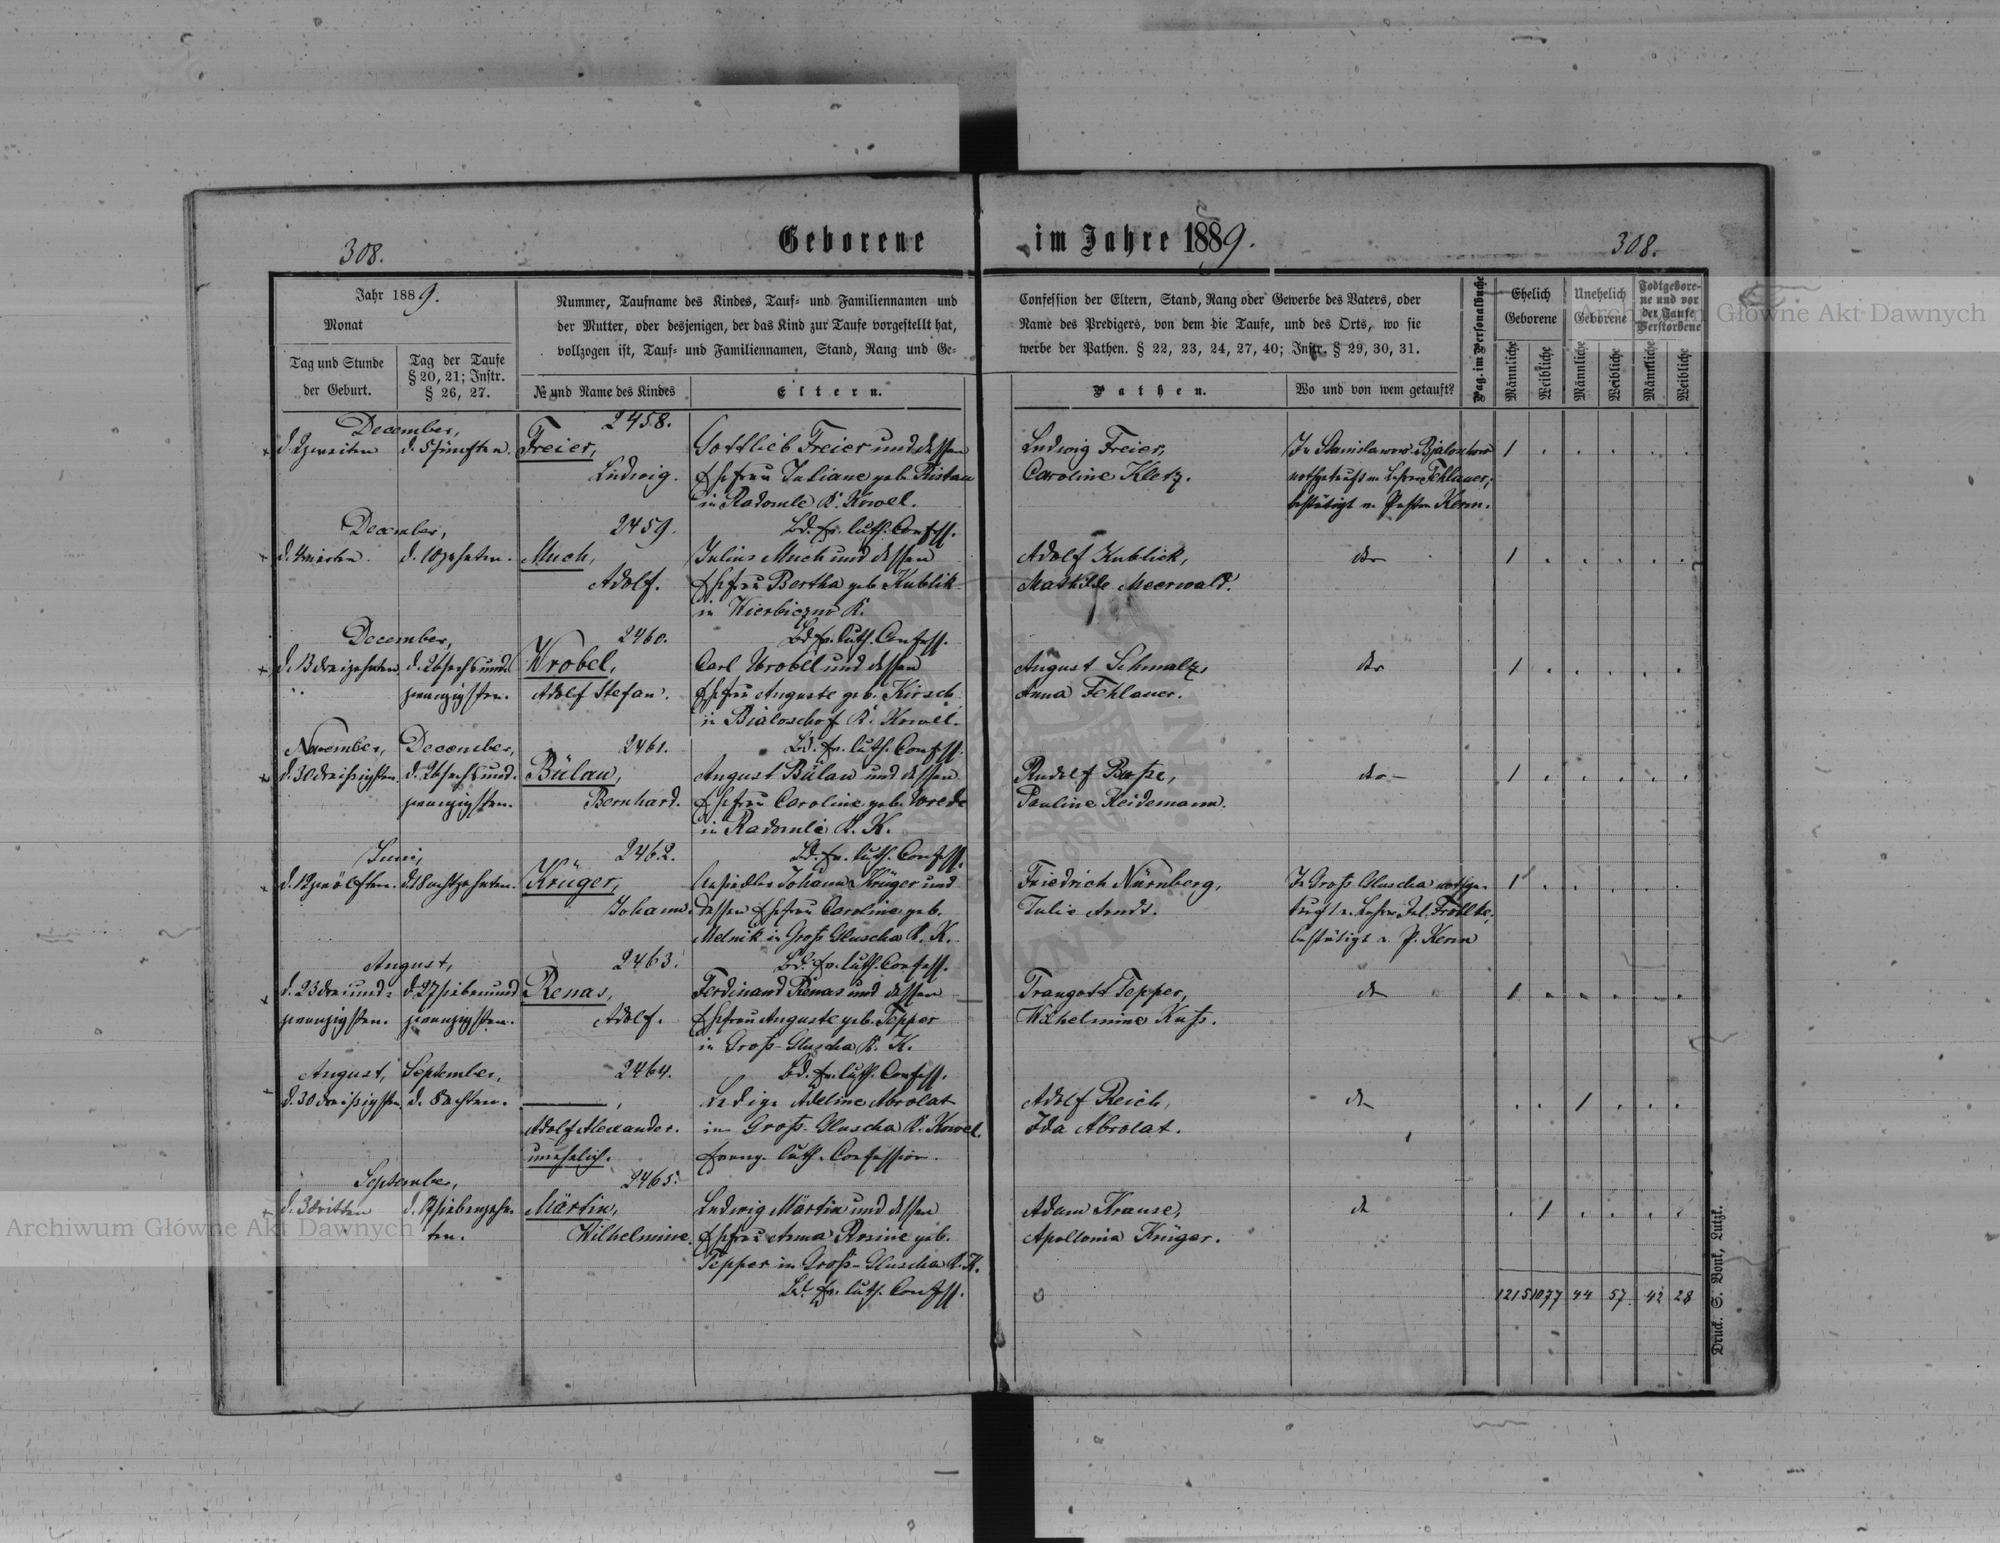 308.
Geborene im Jahre 1889.
308.
Jahr 1889.
Monat
Tag und Stunde
der Geburt.
Tag der Taufe
§ 20, 21; Instr.
§ 26, 27.
Nummer, Taufname des Kindes, Tauf- und Familiennamen und
der Mutter, oder desjenigen, der das Kind zur Taufe vorgestellt hat,
vollzogen ist, Tauf- und Familiennamen, Stand, Rang und Ge-
№ und Name des Kindes
Eltern.
Confession der Eltern, Stand, Rang oder Gewerbe des Vaters, oder
Name des Predigers, von dem die Taufe, und des Orts, wo sie
werbe der Pathen. § 22, 23, 24, 27, 40; Instr. § 29, 30, 31.
Pathen.
Wo und von wem getauft?
Pag. im Personalbuche
Ehelich
Geborene
Unehelich
Geborene
Todtgebore-
ne und vor
der Taufe
Verstorbene
Männliche
Weibliche
Männliche
Weibliche
Männliche
Weibliche
December,
d. 2 zweiten
d. 5 fünften.
2458.
Freier,
Ludwig.
Gottlieb Freier und dessen
Ehefrau Juliane geb. Ristau
in Radomle K. Kowel.
Bd. ev. luth. Confess.
Ludwig Freier,
Caroline Kletz.
nothgetauft v. Lehrer Fehlauer,
bestätigt v. Pastor Kerm.
1 . . . . .
December,
d. 4 vierten
d. 10 zehnten.
2459.
Much,
Adolf.
Julius Much und dessen
Ehefrau Bertha geb. Kublik
in Wierbiczno K.
Bd. ev. luth. Confess.
Adolf Kublick,
Mathilde Meerwald.
do
1 . . . . .
December,
d. 13 dreizehnten
d. 26 sechsund-
zwanzigsten.
2460.
Wrobel,
Adolf Stefan.
Carl Wrobel und dessen
Ehefrau Auguste geb. Kirsch
in Bialoschof K. Kowel.
Bd. ev. luth. Confess.
August Schmalz,
Anna Fehlauer.
do
1 . . . . .
November,
d. 30 dreißigsten
December,
d. 26 sechsund-
zwanzigsten.
2461.
Bülau,
Bernhard.
August Bülau und dessen
Ehefrau Caroline geb. Wrede
in Radomle K. K.
Bd. ev. luth. Confess.
Rudolf Busse,
Pauline Heidemann.
do
1 . . . . .
Juni,
d. 12 zwölften.
d. 18 achtzehnten.
2462.
Krüger,
Johann.
Ansiedler Johann Krüger und
dessen Ehefrau Caroline geb.
Melnik in Groß Gluscha K. K.
Bd. ev. luth. Confess.
Friedrich Nürnberg,
Julie Arndt.
In Groß Gluscha nothge-
tauft v. Lehrer Jul. Fröhlke,
bestätigt v. P. Kerm
1 . . . . .
August,
d. 23 dreiund-
zwanzigsten.
d. 27 siebenund
zwanzigsten.
2463.
Renas,
Adolf.
Ferdinand Renas und dessen
Ehefrau Auguste geb. Tepper
in Groß-Gluscha K. K.
Bd. ev. luth. Confess.
Traugott Tepper,
Wilhelmine Kuß.
do
1 . . . . .
August,
d. 30 dreißigsten
September,
d. 8 achten.
2464.
Adolf Alexander.
unehelich.
Ledige Adeline Abrolat
in Groß-Gluscha K. Kowel.
Evang. luth. Confession.
Adolf Reich,
Ida Abrolat.
do
. . 1 . . .
September,
d. 3 dritten
d. 17 siebenzehn-
ten.
2465.
Märtin,
Wilhelmine.
Ludwig Märtin und dessen
Ehefrau Anna Rosine geb.
Tepper in Groß-Gluscha K. K.
Bd. ev. luth. Confess.
Adam Krause,
Apollonia Krüger.
do
. 1 . . . .
1215 1077 44 57. 42 28
Druck. S. Bonk, Lutzk.
Archiwum Główne Akt Dawnych
Archiwum Główne Akt Dawnych